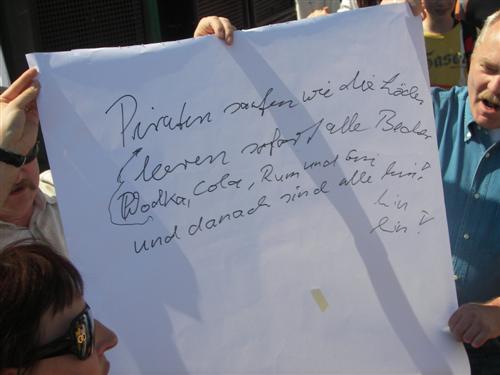 Piraten saufen wie die Löcher
leeren sofort alle Becher
Wodka, Cola, Rum und Gin
und danach sind alle hin!
hin
hin!